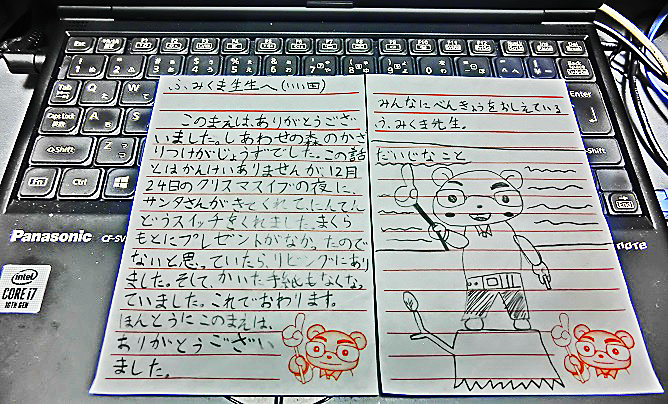 ふみくま先生へ(いい田)
このまえは、ありがとうござ
いました。しあわせの森のかざ
りつけがじょうずでした。この話
とはかんけいありませんが、12月
24日のクリスマスイブの夜に、
サンタさんがきてくれて、にんてん
どうスイッチをくれました。まくら
もとにプレゼントがなかったので
ないと思っていたら、リビングにあり
ました。そして、かいた手紙もなくな
っていました。これでおわります。
ほんとうにこのまえは、
ありがとうござい
ました。
みんなにべんきょうをおしえている
ふみくま先生。
だいじなこと
Panasonic
CF-SV
intel
CORE i7
10TH GEN
NOTE